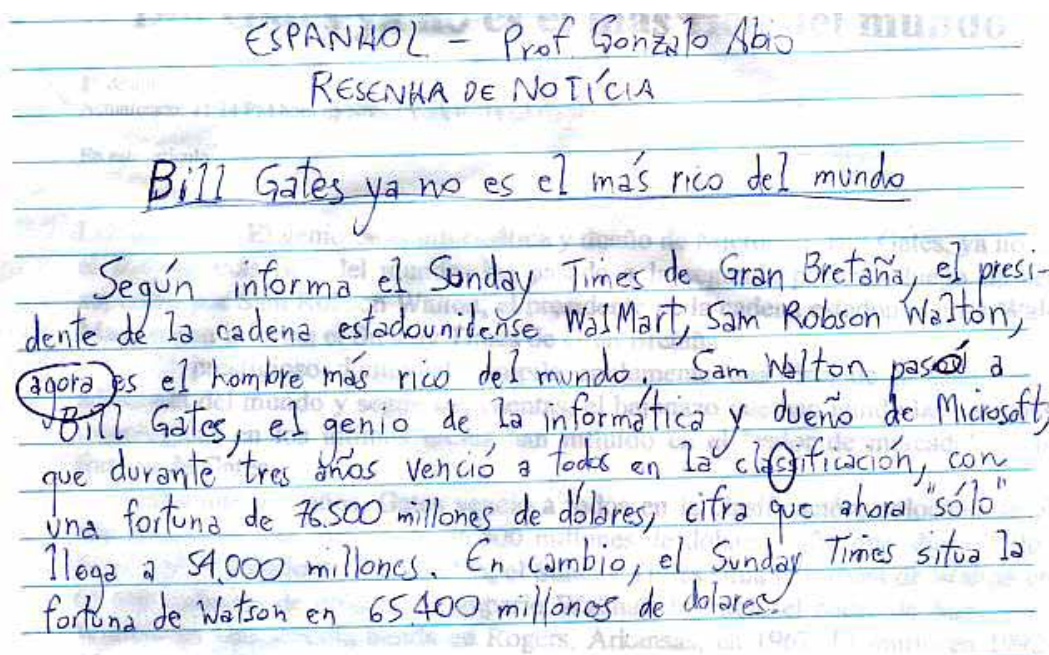 ESPANHOL - Prof Gonzalo Abio
RESENHA DE NOTÍCIA
Bill Gates ya no es el más rico del mundo
Según informa el Sunday Times de Gran Bretaña, el presi-
dente de la cadena estadounidense WalMart, Sam Robson Walton,
agora es el hombre más rico del mundo. Sam Walton pasó a
Bill Gates, el genio de la informática y dueño de Microsoft,
que durante tres años venció a todos en la classificación, con
una fortuna de 76.500 millones de dólares, cifra que ahora "sólo"
llega a 54.000 millones. En cambio, el Sunday Times situa la
fortuna de Watson en 65.400 millones de dolares.